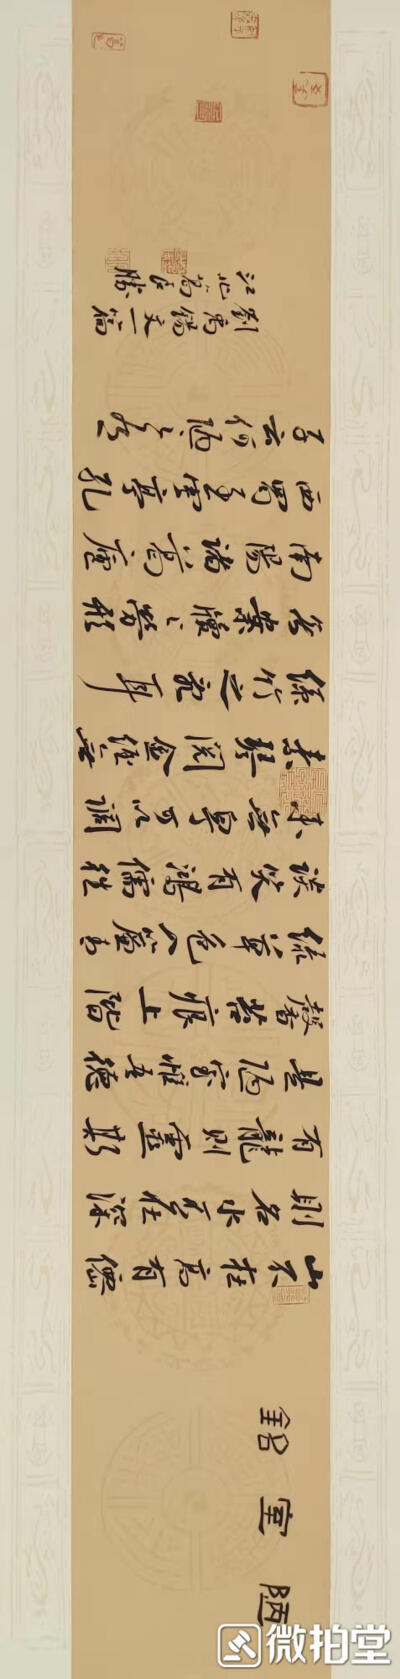 陋室銘
山不在高有僊
則名水不在深
有龍則靈斯
是陋室惟吾德
馨苔痕上階
綠草色入簾青
談笑有鴻儒往
來無白丁可以調
素琴閱金經無
絲竹之亂耳
無案牘之勞形
南陽諸葛廬
西蜀子雲亭孔
子云何陋之有
劉禹錫文一篇
江北
微拍堂